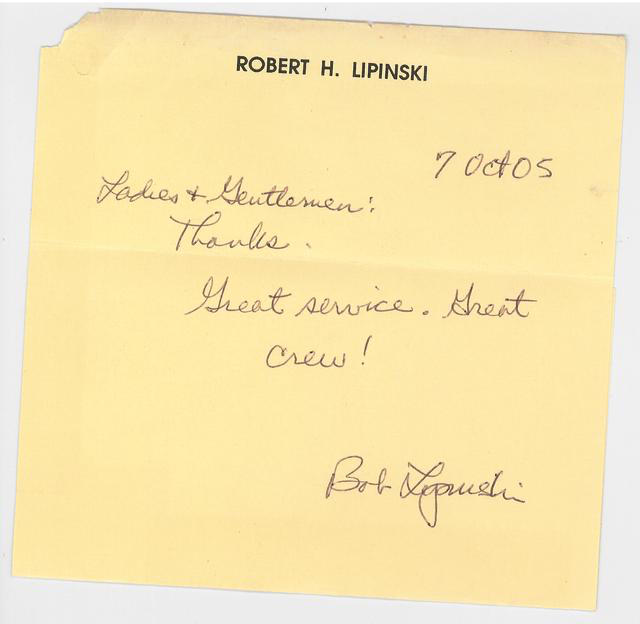 ROBERT H. LIPINSKI
7 Oct 05
Ladies & Gentlemen:
Thanks.
Great service. Great
crew!
Bob Lipinski